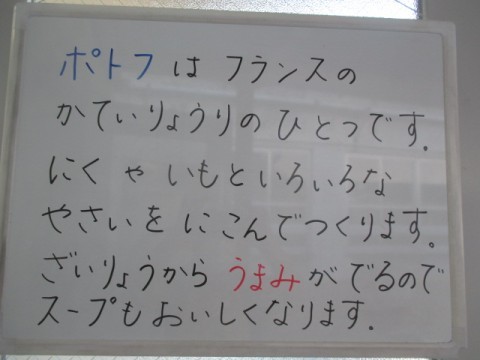 ポトフ は フランスの
かていりょうりの ひとつです。
にく ゃ いもといろいろな
やさいを にこんでつくります。
ざいりょうから うまみが でるので
スープも おいしくなります。